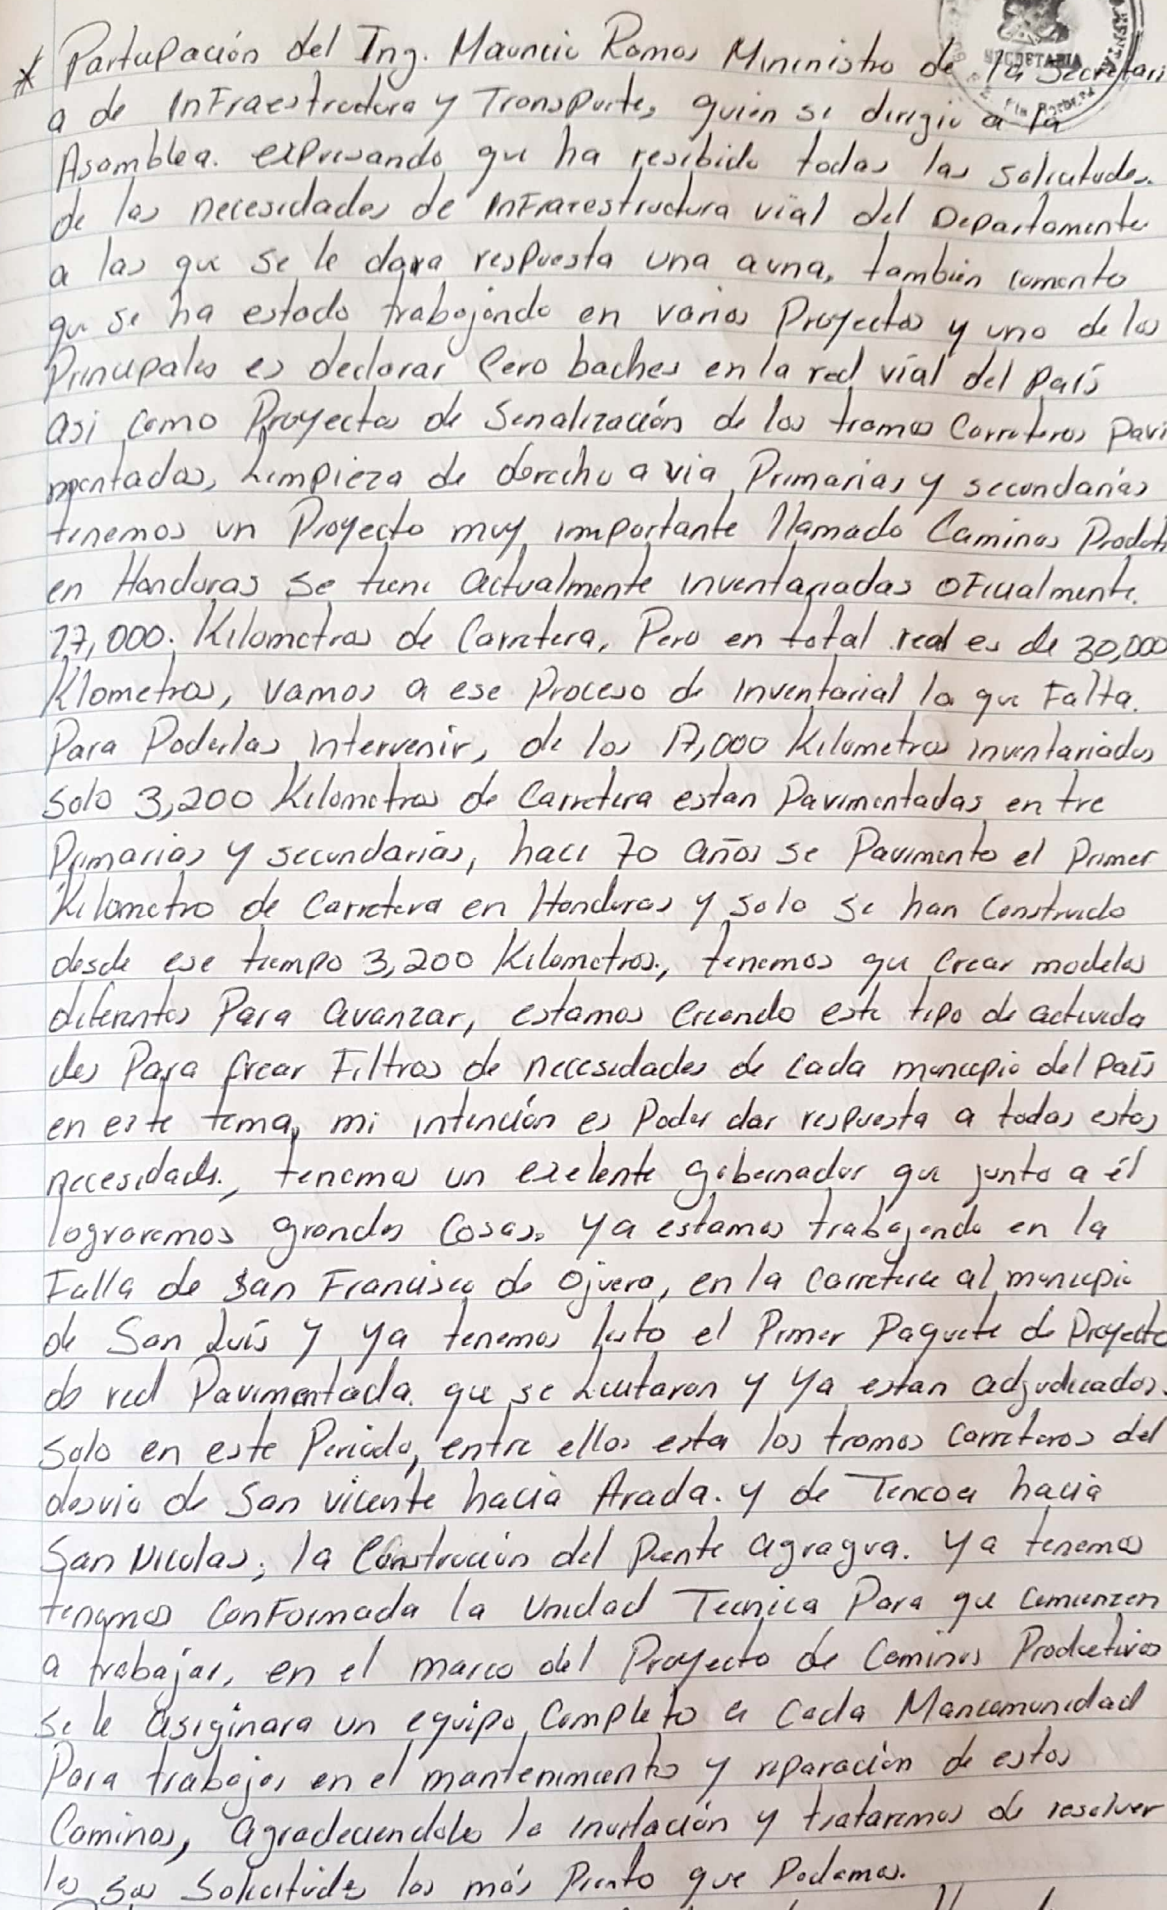 SECRETARIA
* Partupación del Ing. Mauricio Ramos Mininistro de la Secretari
a de InFraestructura y Transporte, quien se dirigio a la
Asamblea. expresando que ha resibido todas las solicitudes.
de las necesidades de InFrarestructura vial del Departamento
a las que se le dara respuesta una auna, tambien comento
que se ha estado trabajando en varios Proyectos y uno de los
Principales es declarar Cero baches en la red vial del País
asi como Proyectos de Senalización de los tramos Carreteros Pavi
mentadas, Limpieza de derecho a via Primarias y secundarias
tenemos un Proyecto muy importante llamado Caminos Produti
en Honduras se tiene actualmente inventariadas oFicialmente.
17,000. Kilometros de Carretera, Pero en total real es de 30,000
Klometros, vamos a ese Proceso de inventarial lo que Falta.
Para Poderlas intervenir, de los 17,000 Kilometros inventariados
solo 3,200 Kilometros de Carretera estan Pavimentadas en tre
Primarias y secundarias, hace 70 años se Pavimento el Primer
Kilometro de Carretera en Honduras y solo se han Construido
desde ese tiempo 3,200 Kilometros., tenemos que Crear modelos
diferentes Para avanzar, estamos Creando este tipo de activida
des Para Crear Filtros de necesidades de cada municipio del País
en este tema, mi intención es Poder dar respuesta a todas estas
necesidads., tenemos un exelente gobernador que junto a él
lograremos grandes Cosas. Ya estamos trabajando en la
Falla de San Francisco de Ojuera, en la Carretera al municipio
de San Luís y ya tenemos listo el Primer Paquete de Proyecto
de red Pavimentada. que se licitaron y ya estan adjudicados.
Solo en este Periodo, entre ellos esta los tramos Carreteros del
desvio de San vicente hacia Arada. y de Tencoa hacia
San Nicolas; la Construcion del Puente agragua. Ya tenemos
tenemos ConFormada la Unidad Tecnica Para que Comienzen
a trabajar, en el marco del Proyecto de Caminos Productivos
se le asiginara un equipo Completo a Cada Mancomunidad
Para trabajar en el mantenimiento y reparación de estos
Caminos, agradeciendole la invitación y trataremos de resolver
les sus Solicitudes los más Pronto que Podamos.